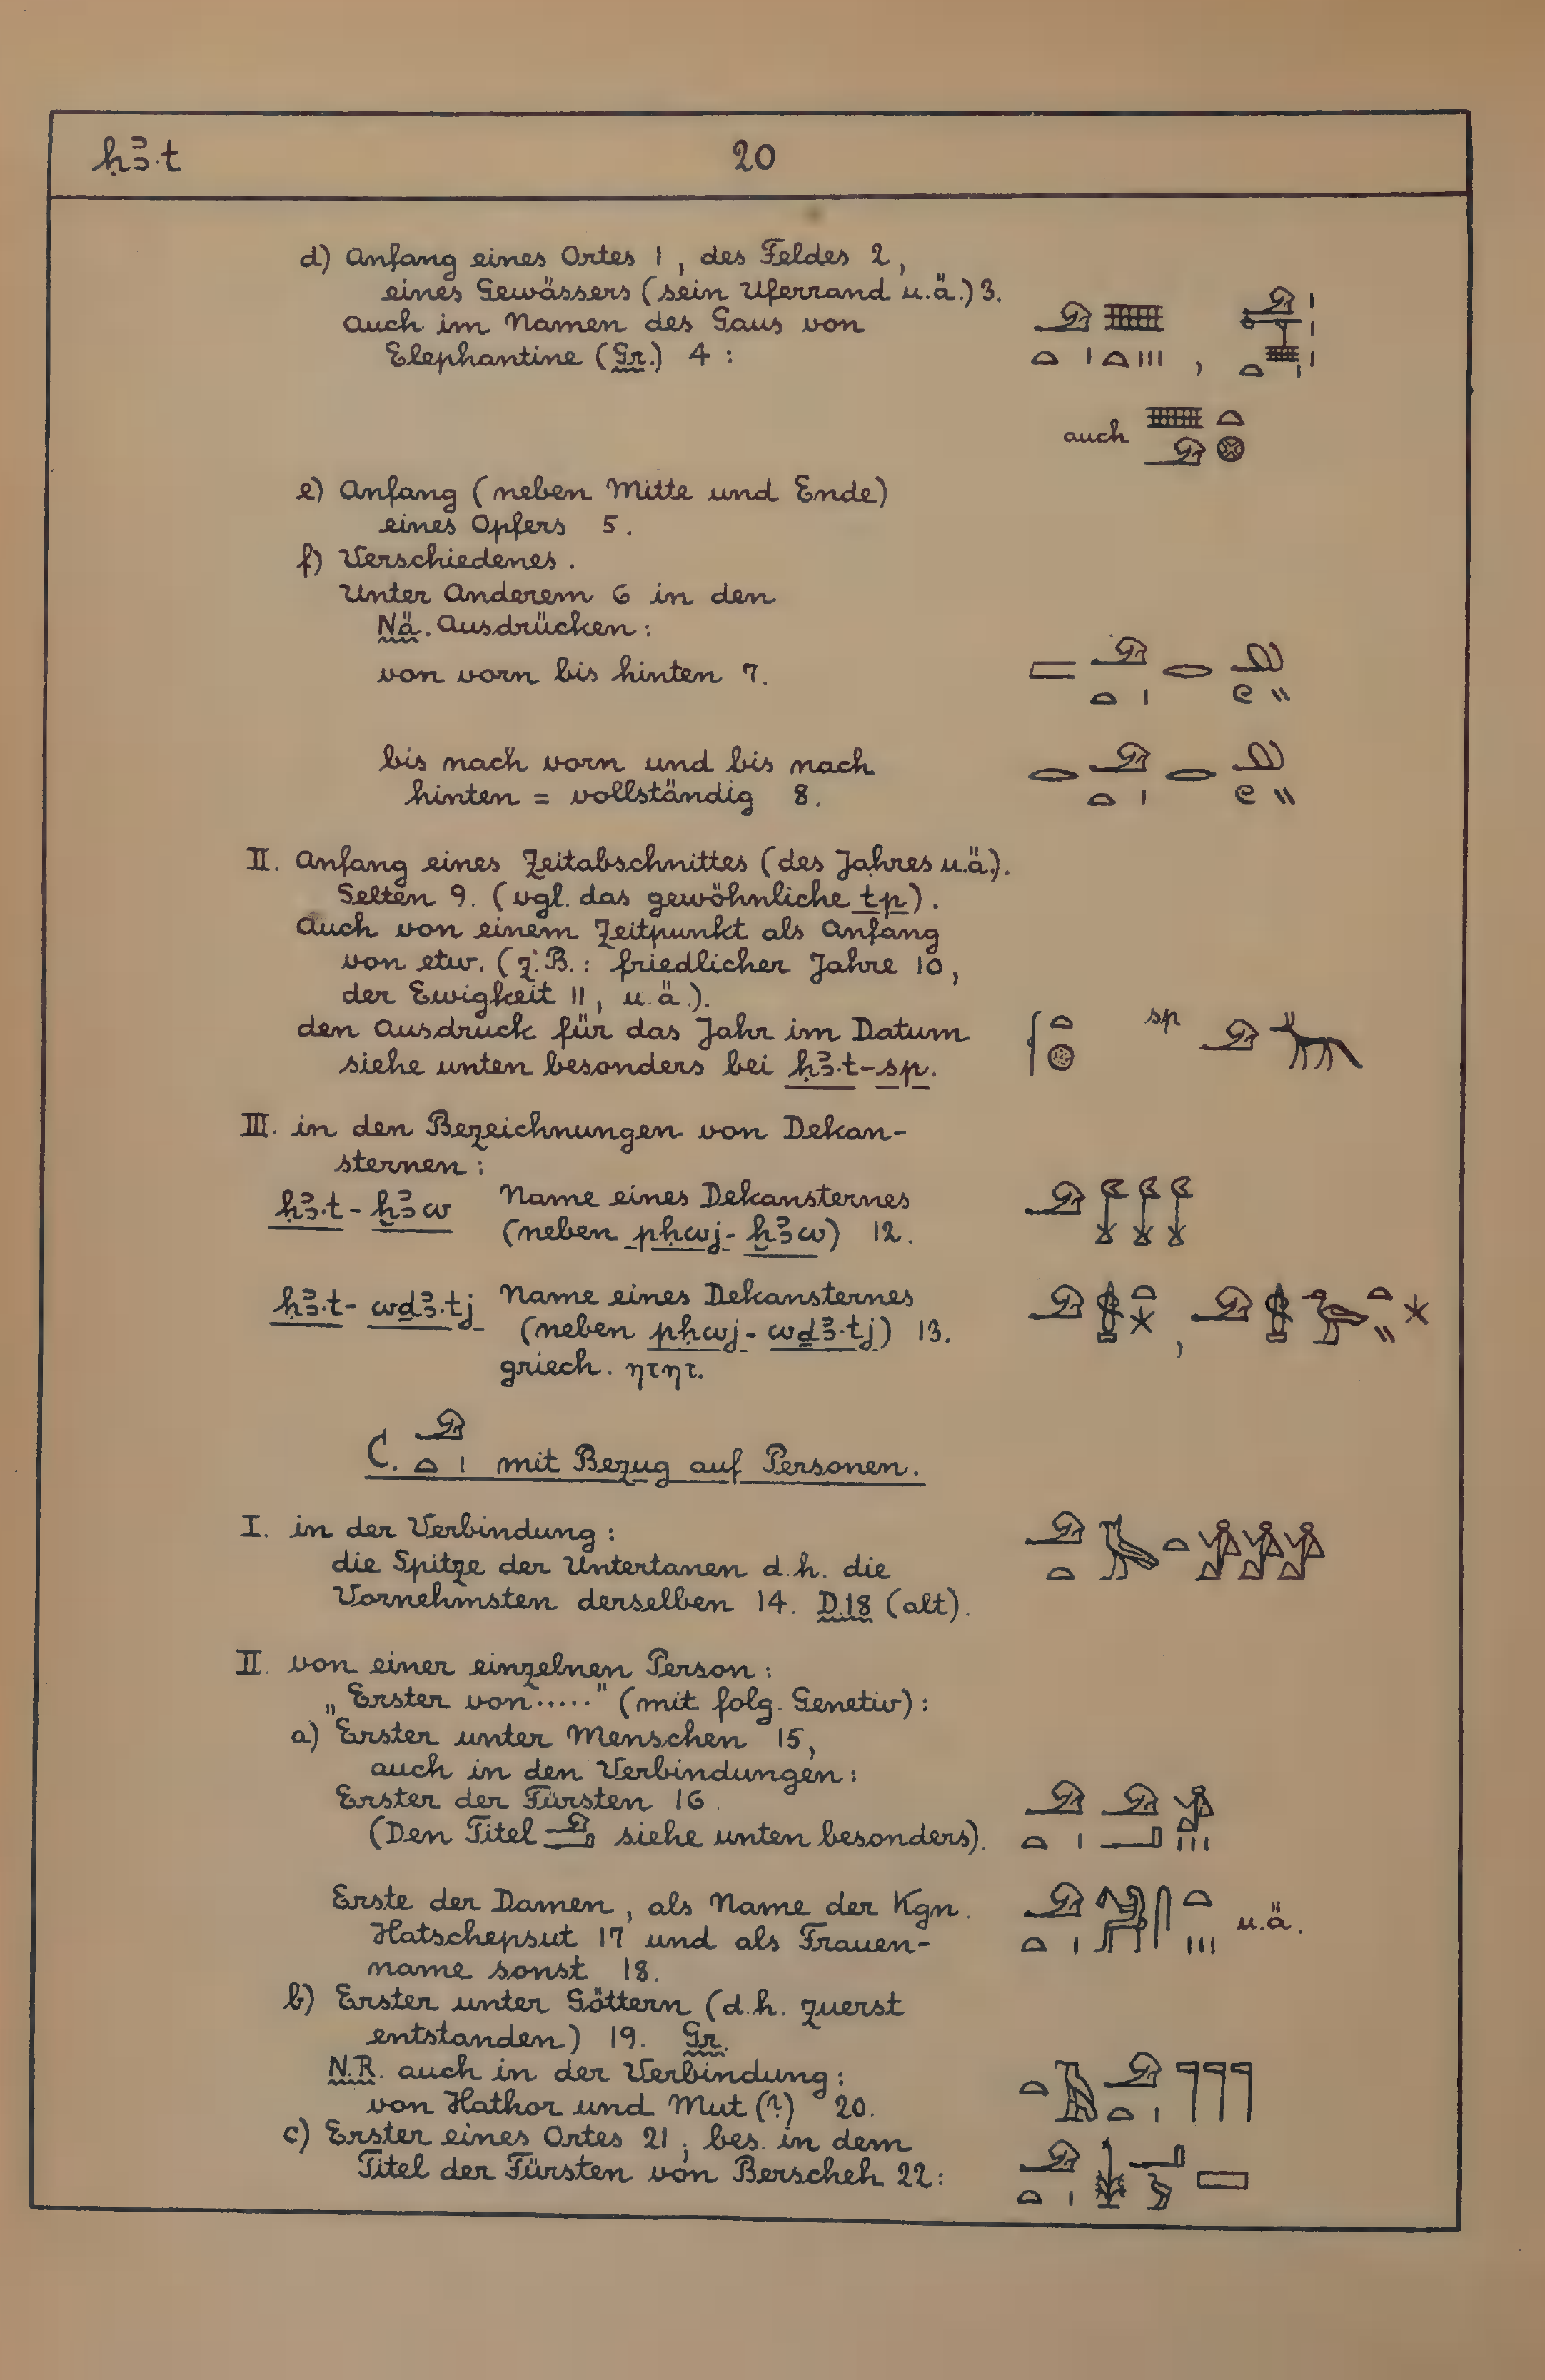 ḥꜣ.t 20
d) Anfang eines Ortes 1, des Feldes 2,
eines Gewässers (sein Uferrand u.ä.) 3.
Auch im Namen des Gaus von
Elephantine (Gr.) 4 :
auch
e) Anfang (neben Mitte und Ende)
eines Opfers 5.
f) Verschiedenes.
Unter Anderem 6 in den
Nä. Ausdrücken:
von vorn bis hinten 7.
bis nach vorn und bis nach
hinten = vollständig 8.
II. Anfang eines Zeitabschnittes (des Jahres u.ä.).
Selten 9. (vgl. das gewöhnliche tp).
Auch von einem Zeitpunkt als Anfang
von etw. (z.B.: friedlicher Jahre 10,
der Ewigkeit 11, u.ä.).
den Ausdruck für das Jahr im Datum sp
siehe unten besonders bei ḥꜣ.t-sp.
III. in den Bezeichnungen von Dekan-
sternen:
ḥꜣ.t - ḫꜣw Name eines Dekansternes
(neben pḥwj - ḫꜣw) 12.
ḥꜣ.t - wḏꜣ.tj Name eines Dekansternes
(neben pḥwj - wḏꜣ.tj) 13.
griech. ητητ.
C. 𓄂𓏏𓏤 mit Bezug auf Personen.
I. in der Verbindung:
die Spitze der Untertanen d.h. die
Vornehmsten derselben 14. D.18 (alt).
II. von einer einzelnen Person:
„Erster von....." (mit folg. Genetiv):
a) Erster unter Menschen 15,
auch in den Verbindungen:
Erster der Fürsten 16.
(Den Titel 𓄂𓂝 siehe unten besonders).
Erste der Damen, als Name der Kgn. u.ä.
Hatschepsut 17 und als Frauen-
name sonst 18.
b) Erster unter Göttern (d.h. zuerst
entstanden) 19. Gr.
N.R. auch in der Verbindung:
von Hathor und Mut (?) 20.
c) Erster eines Ortes 21; bes. in dem
Titel der Fürsten von Berscheh 22: